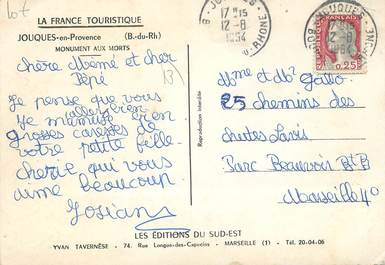 lot
LA FRANCE TOURISTIQUE
JOUQUES-en-Provence (B.-du-Rh)
MONUMENT AUX MORTS
13
chère Mémé et cher
Pépé
Je pense que vous
allez bien
Je m'amuse bien
grosses caresses de
votre petite fille
cherie qui vous
aime beaucoup.
Josiane
Reproduction interdite
17H15
12-8
1964
B. RHONE
JOUQUES
12-8
1964
RÉPUBLIQUE FRANÇAISE
0,25
Mme et Mr Gallo
25 chemins des
chutes Lavis
Parc Beauvoir Bt B
Marseille 4°
LES ÉDITIONS DU SUD-EST
YVAN TAVERNÈSE - 74, Rue Longue-des-Capucins - MARSEILLE (1) - Tél. 20-04-06